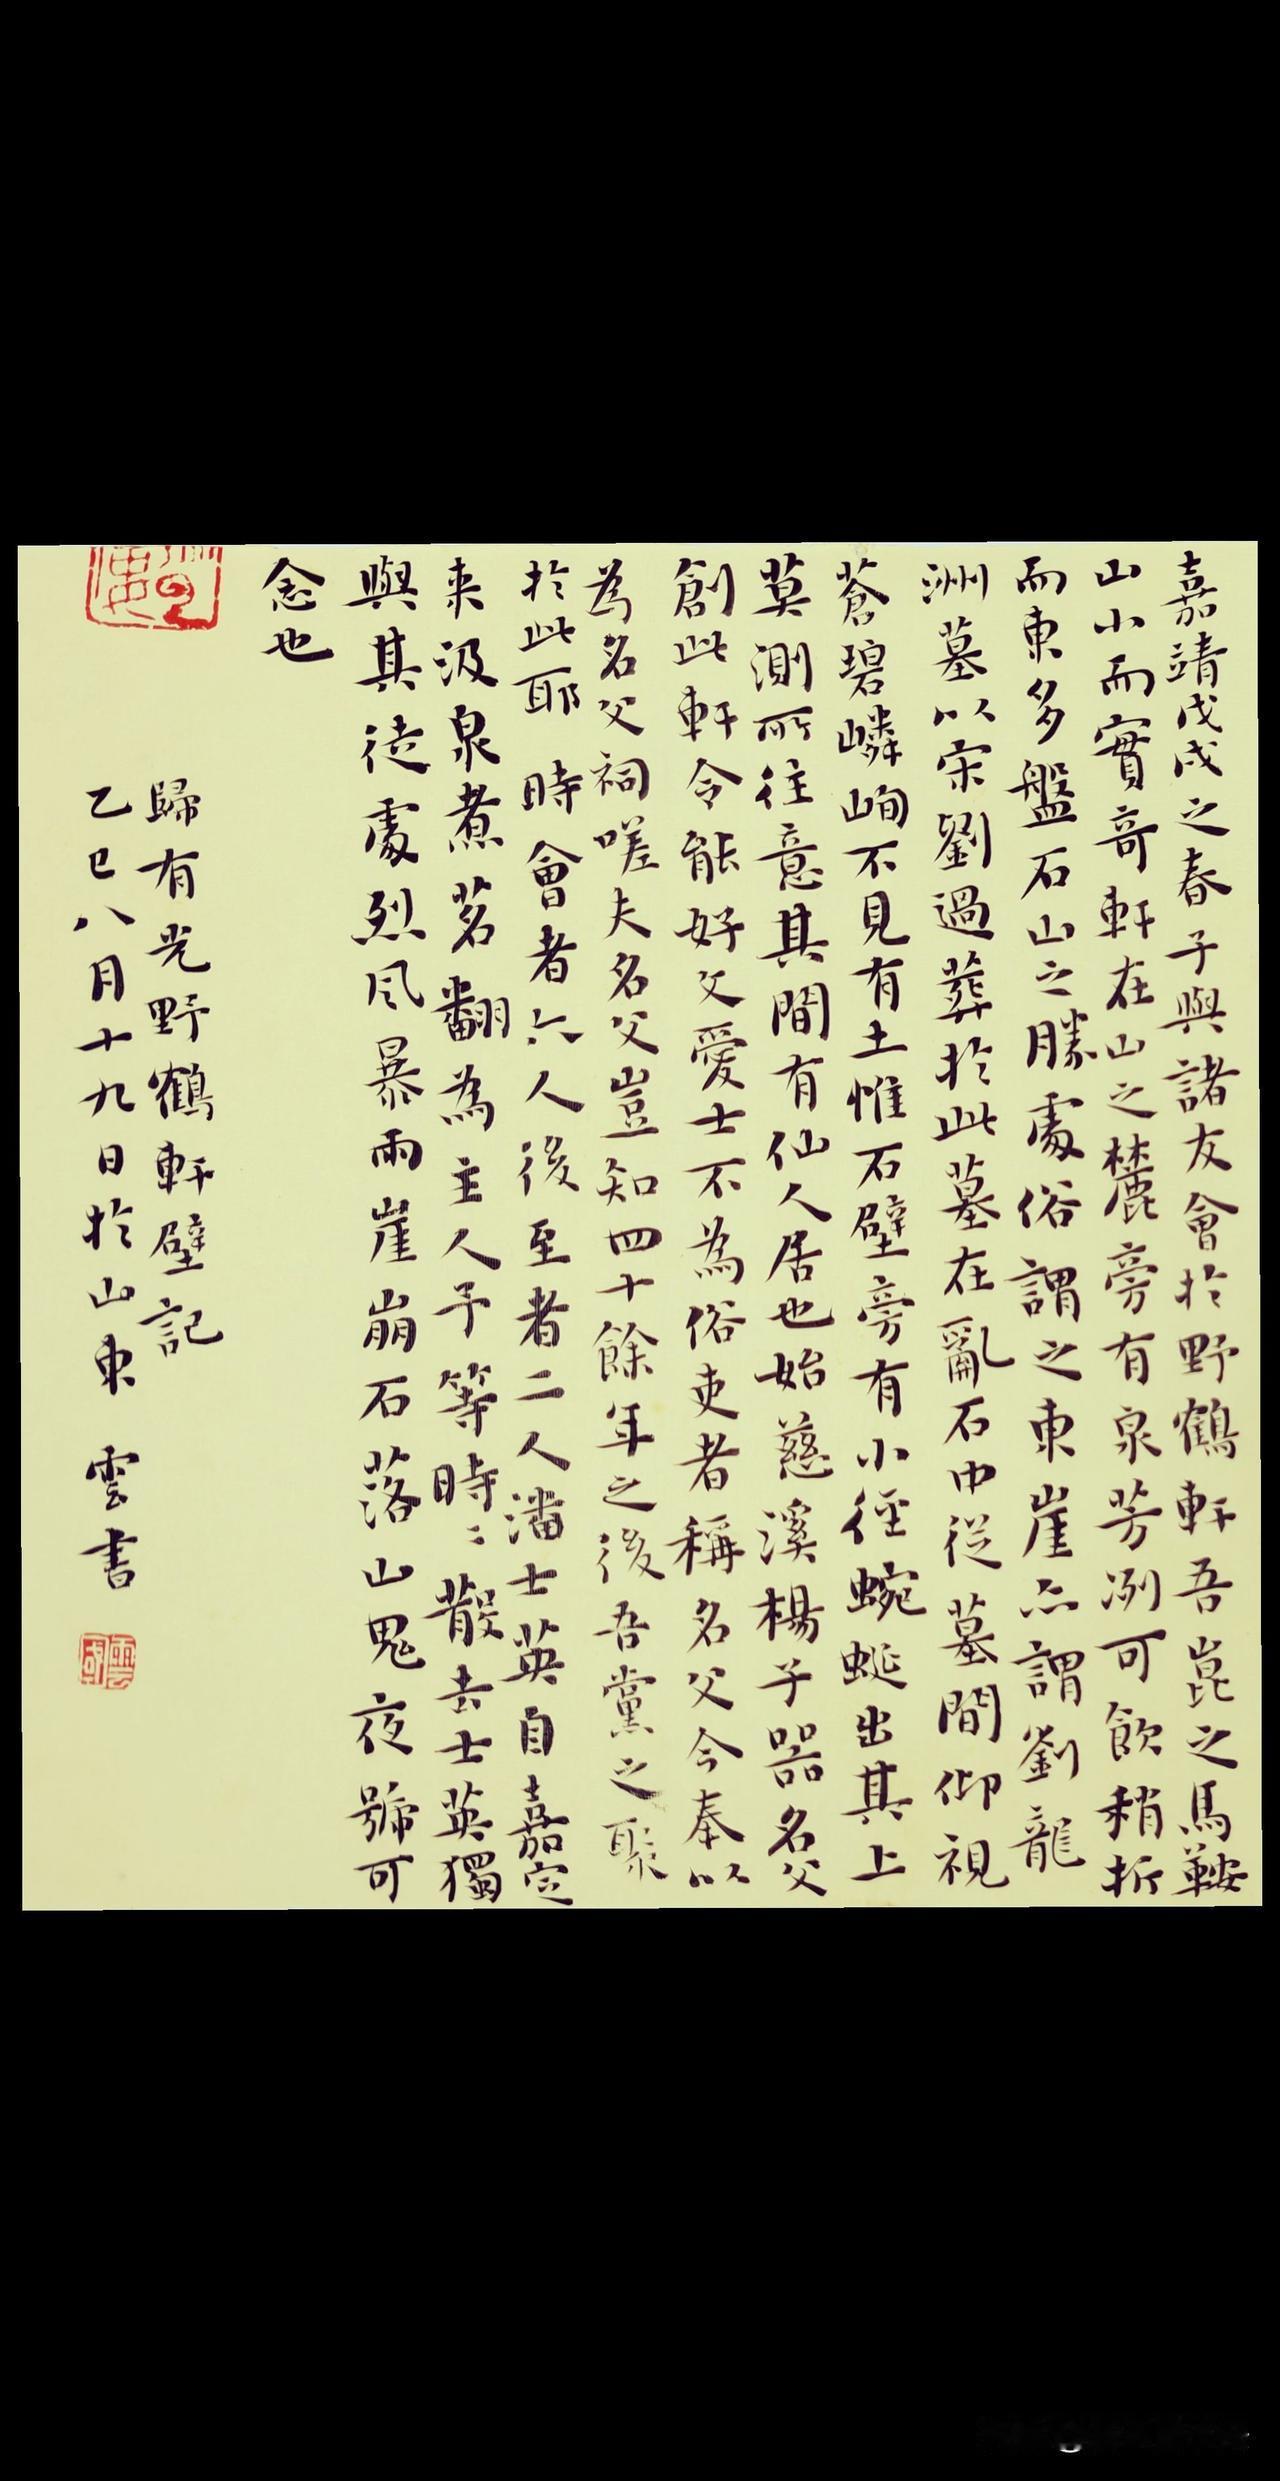 嘉靖戊戌之春予與諸友會於野鶴軒吾崑之馬鞍
山小而實奇軒在山之麓旁有泉芳冽可飲稍折
而東多盤石山之勝處俗謂之東崖亦謂劉龍
洲墓以宋劉過葬於此墓在亂石中從墓間仰視
蒼碧嶙峋不見有土惟石壁旁有小徑蜿蜒出其上
莫測所往意其間有仙人居也始慈溪楊子器名父
創此軒令能好文愛士不為俗吏者稱名父今奉以
為名父祠嗟夫名父豈知四十餘年之後吾黨之聚
於此耶時會者六人後至者二人潘士英自嘉定
来汲泉煮茗翻為主人予等時〻散去士英獨
與其徒處烈風暴雨崖崩石落山鬼夜號可
念也
歸有光野鶴軒壁記
乙巳八月十九日於山東 雲書